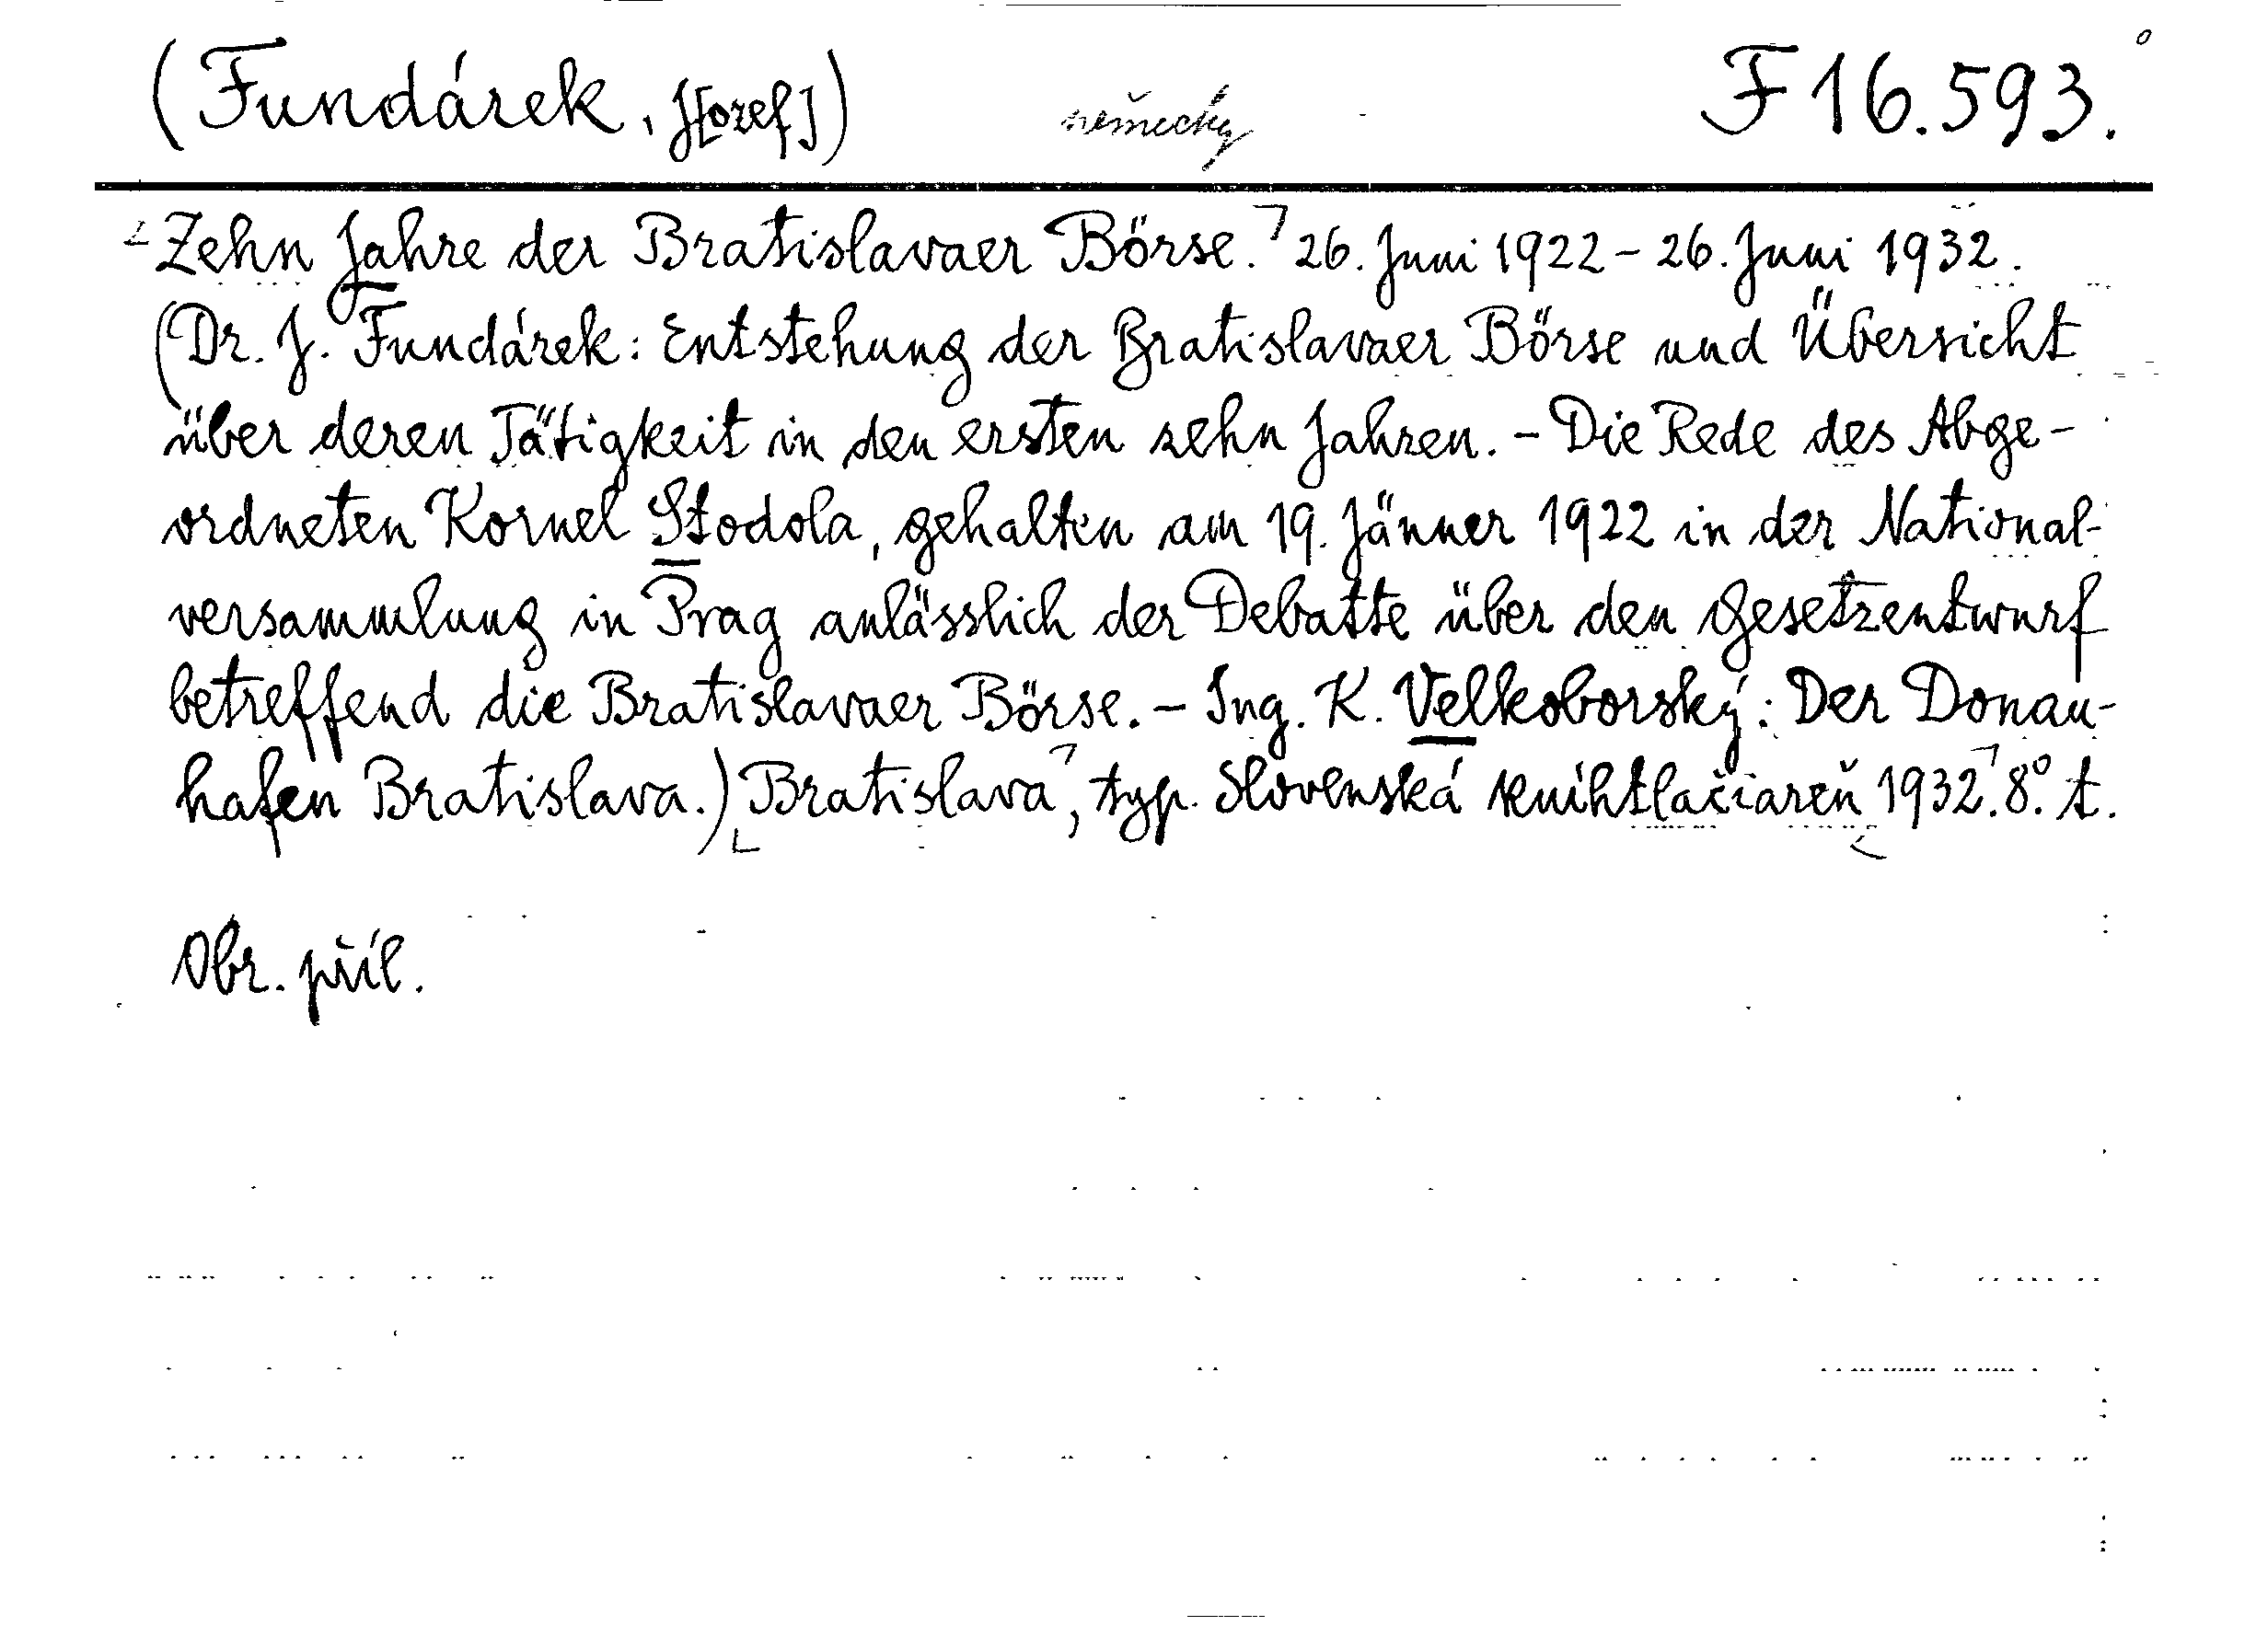 (Fundárek, J[ozef]) německy F 16.593.
Zehn Jahre der Bratislavaer Börse. 26. Juni 1922 - 26. Juni 1932.
(Dr. J. Fundárek: Entstehung der Bratislavaer Börse und Übersicht
über deren Tätigkeit in den ersten zehn Jahren. - Die Rede des Abge-
ordneten Kornel Stodola, gehalten am 19. Jänner 1922 in der National-
versammlung in Prag anlässlich der Debatte über den Gesetzentwurf
betreffend die Bratislavaer Börse. - Ing. K. Velkoborský: Der Donau-
hafen Bratislava.) Bratislava, typ. Slovenská knihtlačiareň 1932. 8°. t.
Obr. příl.